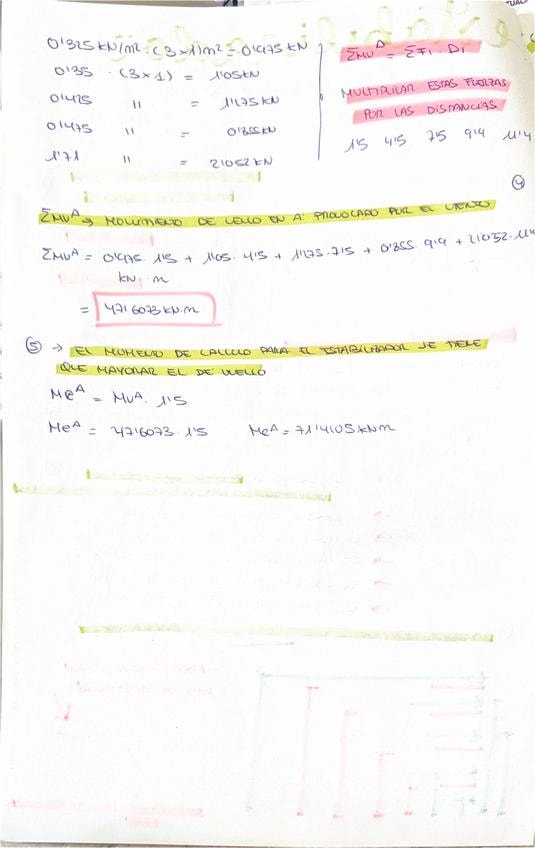 0'325 KN/m² · (3×1)m² = 0'975 KN
0'35 · (3×1) = 1'05 KN
0'425 " = 1'175 KN
0'475 " = 0'855 KN
1'71 " = 2'1052 KN
ΣMv^A = ΣFi · Di
MULTIPLICAR ESTAS FUERZAS
POR LAS DISTANCIAS
1'5 4'5 7'5 9'9 11'4
④
ΣMv^A → MOVIMIENTO DE VELLO EN A PROVOCADO POR EL VIENTO
ΣMv^A = 0'975 · 1'5 + 1'05 · 4'5 + 1'175 · 7'5 + 0'855 · 9'9 + 2'1052 · 11'4
KN · m
= 47'6073 KN·m
⑤ → EL MOMENTO DE CALCULO PARA EL ESTABILIZADOR SE TIENE
QUE MAYORAR EL DE VUELLO
Me^A = Mv^A · 1'5
Me^A = 47'6073 · 1'5 Me^A = 71'4105 KNm